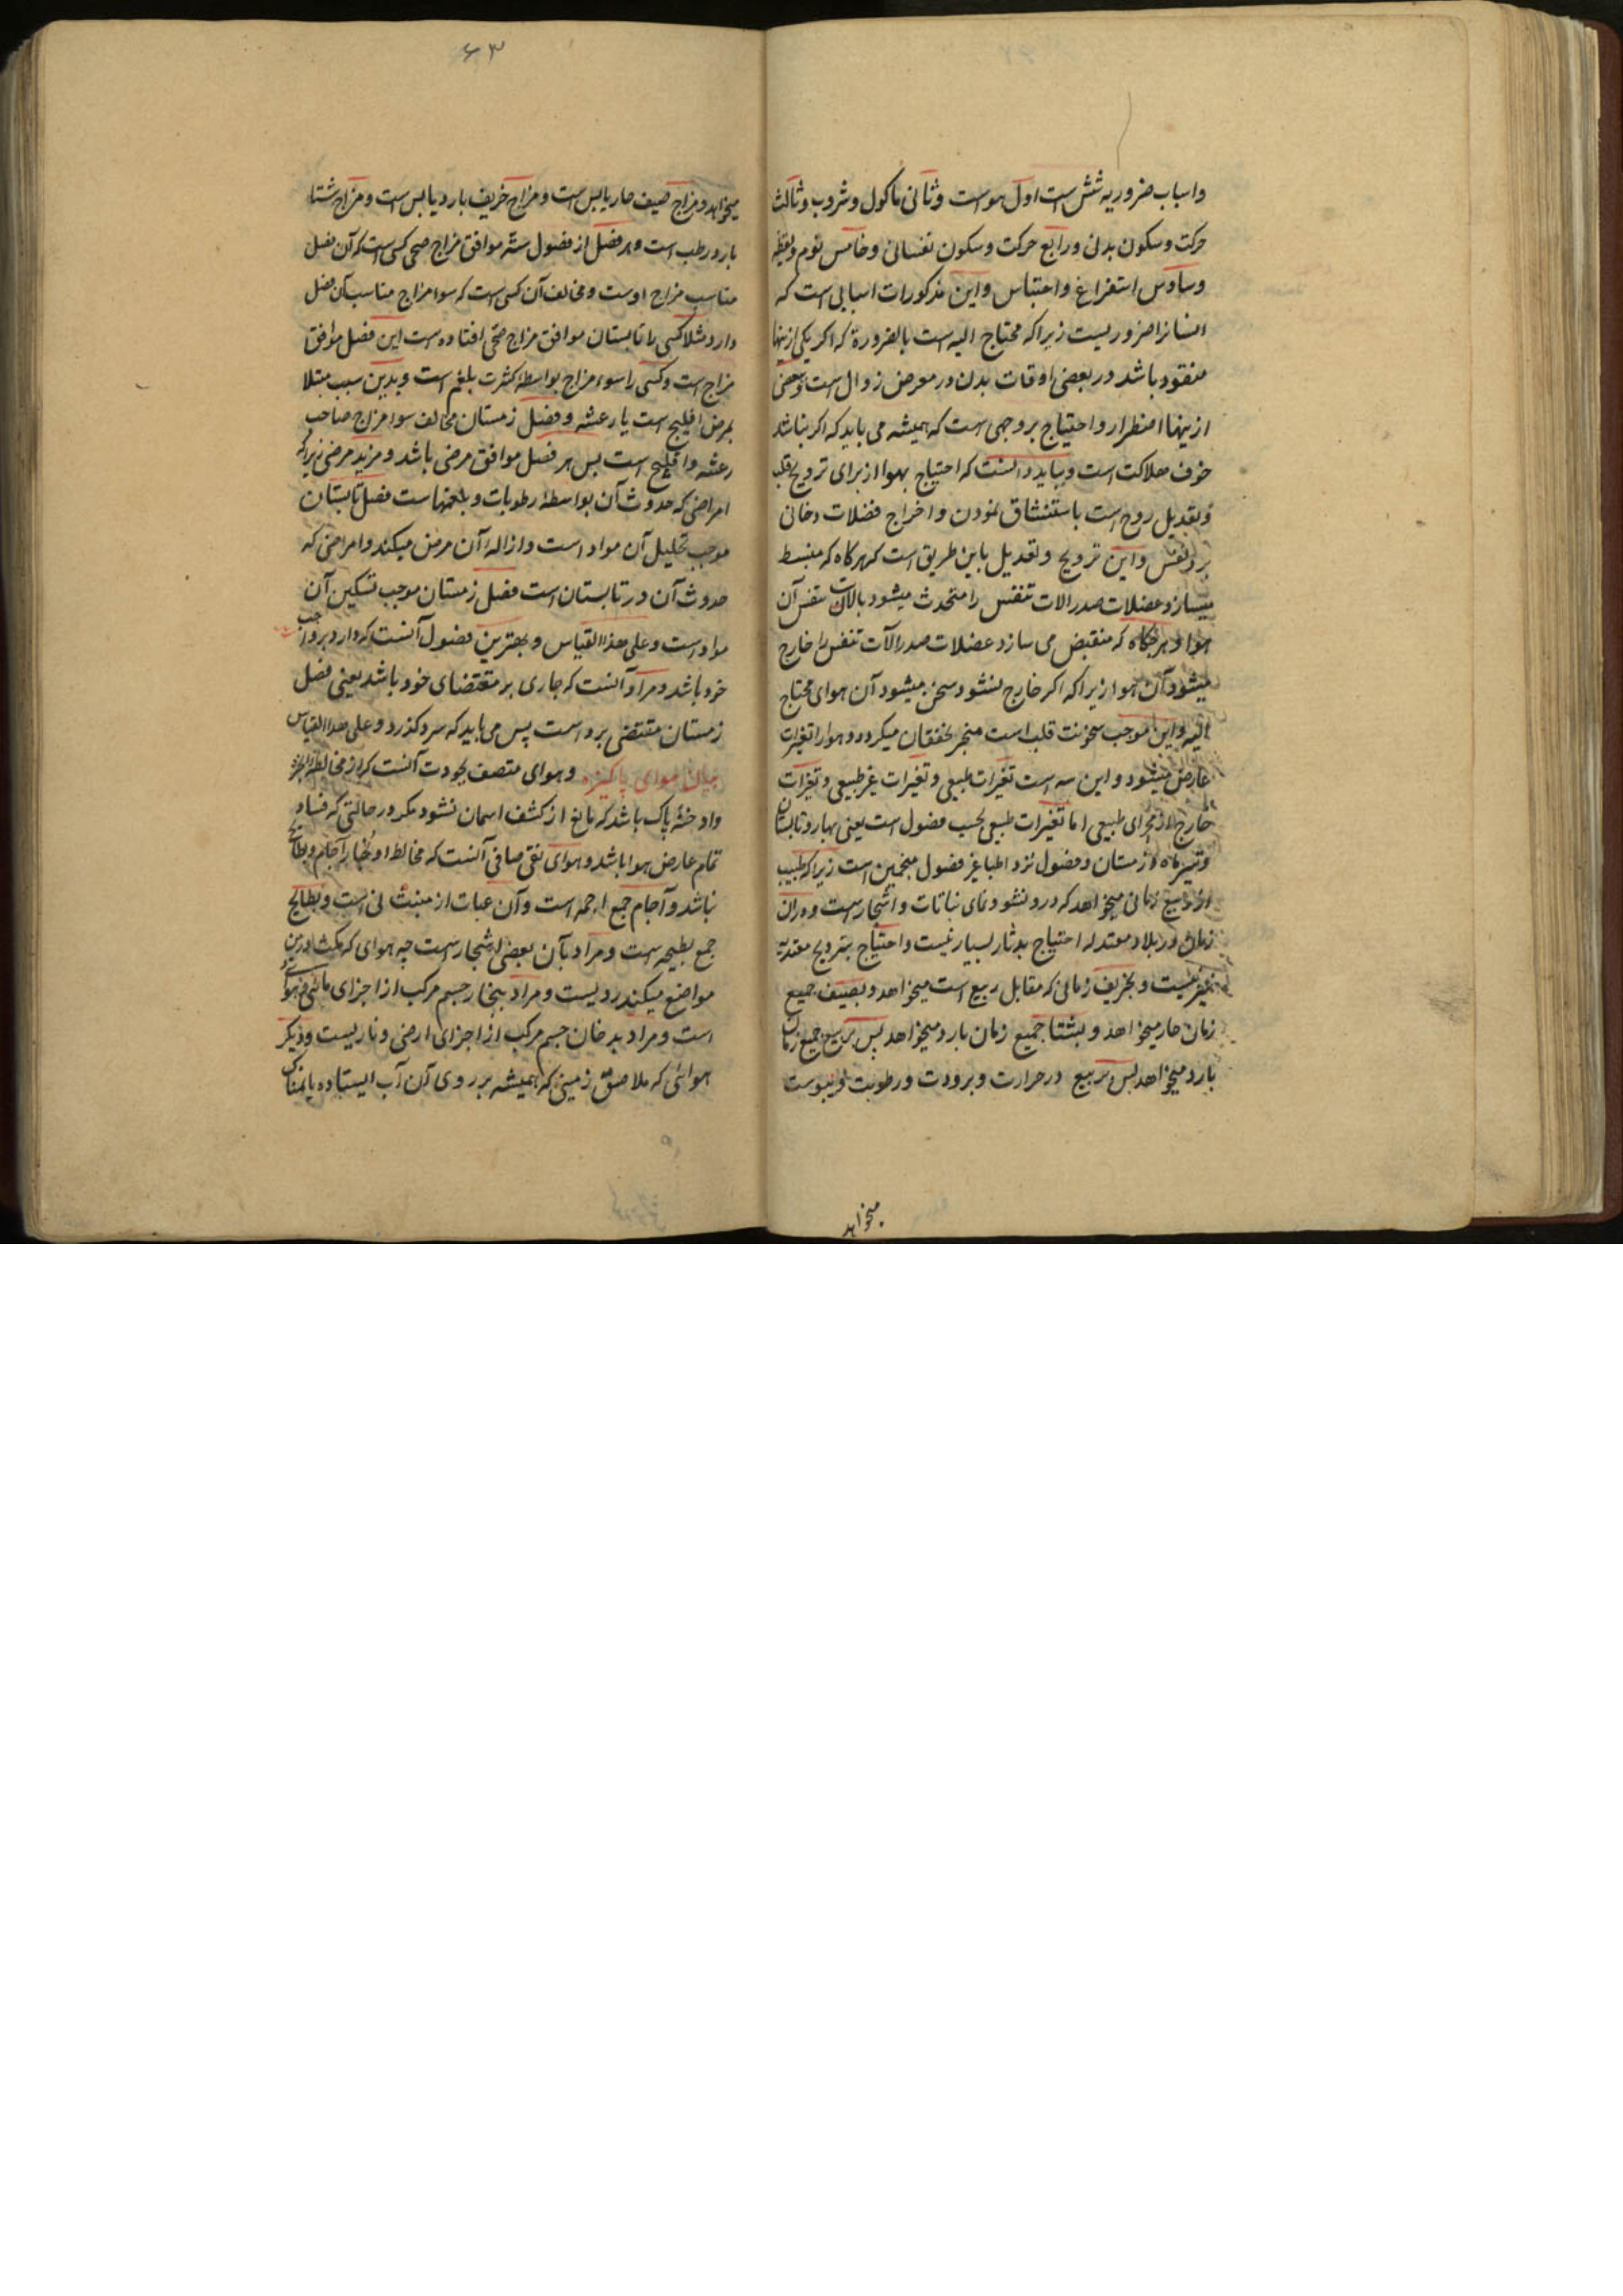 واسباب ضروریه شش است اول هواست وثانی ماکول ومشروب وثالث
حرکت وسکون بدنی ورابع حرکت وسکون نفسانی وخامس نوم ویقظه
وسادس استفراغ واحتباس واین مذکورات اسبابی است که
انسانرا ضروریست زیراکه محتاج الیه است بالضرورة که اکر یکی ازینها
مفقود باشد در بعضی اوقات بدن در معرض زوال است وبعضی
ازینها اضطرار واحتیاج بروجهی است که همیشه می باید که اکر نباشد
خوف هلاکت است وبباید دانست که احتیاج بهوا از برای ترویح قلب
وتعدیل روح است باستنشاق نمودن واخراج فضلات دخانی
برد نفس واین ترویح وتعدیل باین طریق است که هرکاه که منبسط
میسازد عضلات صدر الات تنفس را منجذب میشود بالات تنفس آن
هوا وهرکاه که منقبض می سازد عضلات صدر الآت تنفس را خارج
میشود آن هوا زیراکه اکر خارج نشود سخن میشود آن هوای محتاج
الیه واین موجب سخونت قلب است منجر بخفقان میکردد وهوارا تغیرات
عارض میشود واین سه است تغیرات طبیعی وتغیرات غیر طبیعی وتغیرات
خارج از مجرای طبیعی اما تغیرات طبیعی بحسب فصول است یعنی بهار وتابستان
وتیرماه وزمستان وفصول نزد اطبا غیر فصول منجمین است زیراکه طبیب
از ربیع زمانی میخواهد که درو نشو ونمای نباتات واشجار است ودران
زمان در بلاد معتدله احتیاج بدثار بسیار نیست واحتیاج بترویح معتدبه
نیز نیست وبخریف زمانی که مقابل ربیع است میخواهد وبصیف جمیع
زمان حار میخواهد وبشتا جمیع زمان بارد میخواهد پس بربیع جمیع زمان
بارد میخواهد پس ربیع در حرارت وبرودت ورطوبت ویبوست
میخواهد
۶۳
میخواهد ومزاج صیف حار یابس است ومزاج خریف بارد یابس است ومزاج شتا
بارد رطب است وهر فصل از فصول سنه موافق مزاج صحی کسی است که آن فصل
مناسب مزاج اوست ومخالف آن کسی است که سوء مزاج مناسب آن فصل
دارد مثلا کسی را تابستان موافق مزاج صحی افتاده است این فصل موافق
مزاج است وکسی را سوء مزاج بواسطه کثرت بلغم است وبدین سبب مبتلا
بمرض افلیج است یا رعشه وفصل زمستان مخالف سوء مزاج صاحب
رعشه وافلیج است پس هر فصل موافق مرضی باشد ومزید مرضی زیراکه
امراضی که حدوث آن بواسطه رطوبات وبلغمهاست فصل تابستان
موجب تحلیل آن مواد است وازاله آن مرض میکند وامراضی که
حدوث آن در تابستان است فصل زمستان موجب تسکین آن
مواد است وعلی هذا القیاس وبهترین فصول آنست که وارد بر واجب
خود باشد ومراد آنست که جاری بر مقتضای خود باشد یعنی فصل
زمستان مقتضی برد است پس می باید که سرد کذرد وعلی هذا القیاس
بیان هوای پاکیزه وهوای متصف بجودت آنست که از مخالطه ابخره
وادخنه پاک باشد که مانع از کشف اسمان نشود مکر در حالتی که فساد
تمام عارض هوا باشد وهوای نقی صافی آنست که مخالط او بخار آجام وبطایح
نباشد وآجام جمع اجمه است وآن عبارت از منبت نی است وبطایح
جمع بطیحه است ومراد بآن بعضی اشجار است چه هوای که مکث درین
مواضع میکند ردیست ومراد ببخار جسم مرکب از اجزای مائی وهوائی
است ومراد بدخان جسم مرکب از اجزای ارضی وناریست ودیکر
هوائی که ملاصق زمینی که همیشه بر روی آن آب ایستاده یا نمناک